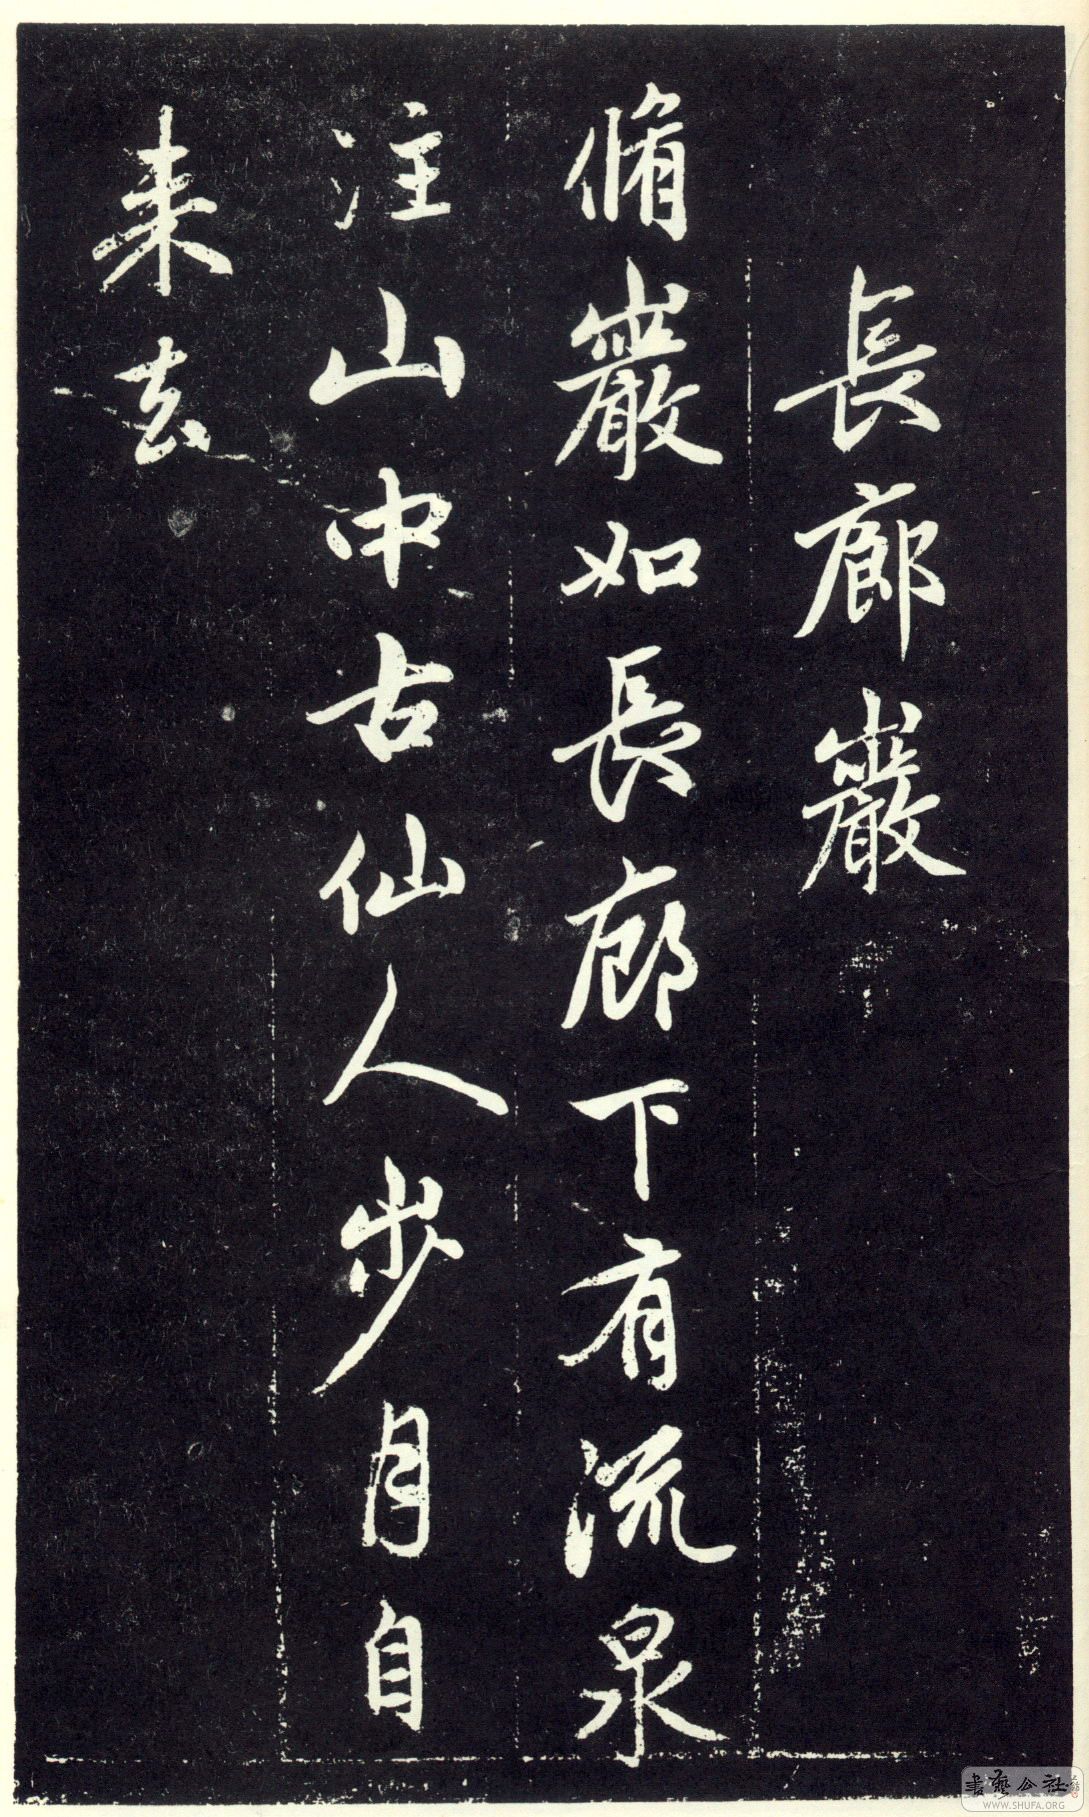 長廊巖
脩巖如長廊下有流泉
注山中古仙人步月自
来去
書艺公社
WWW.SHUFA.ORG